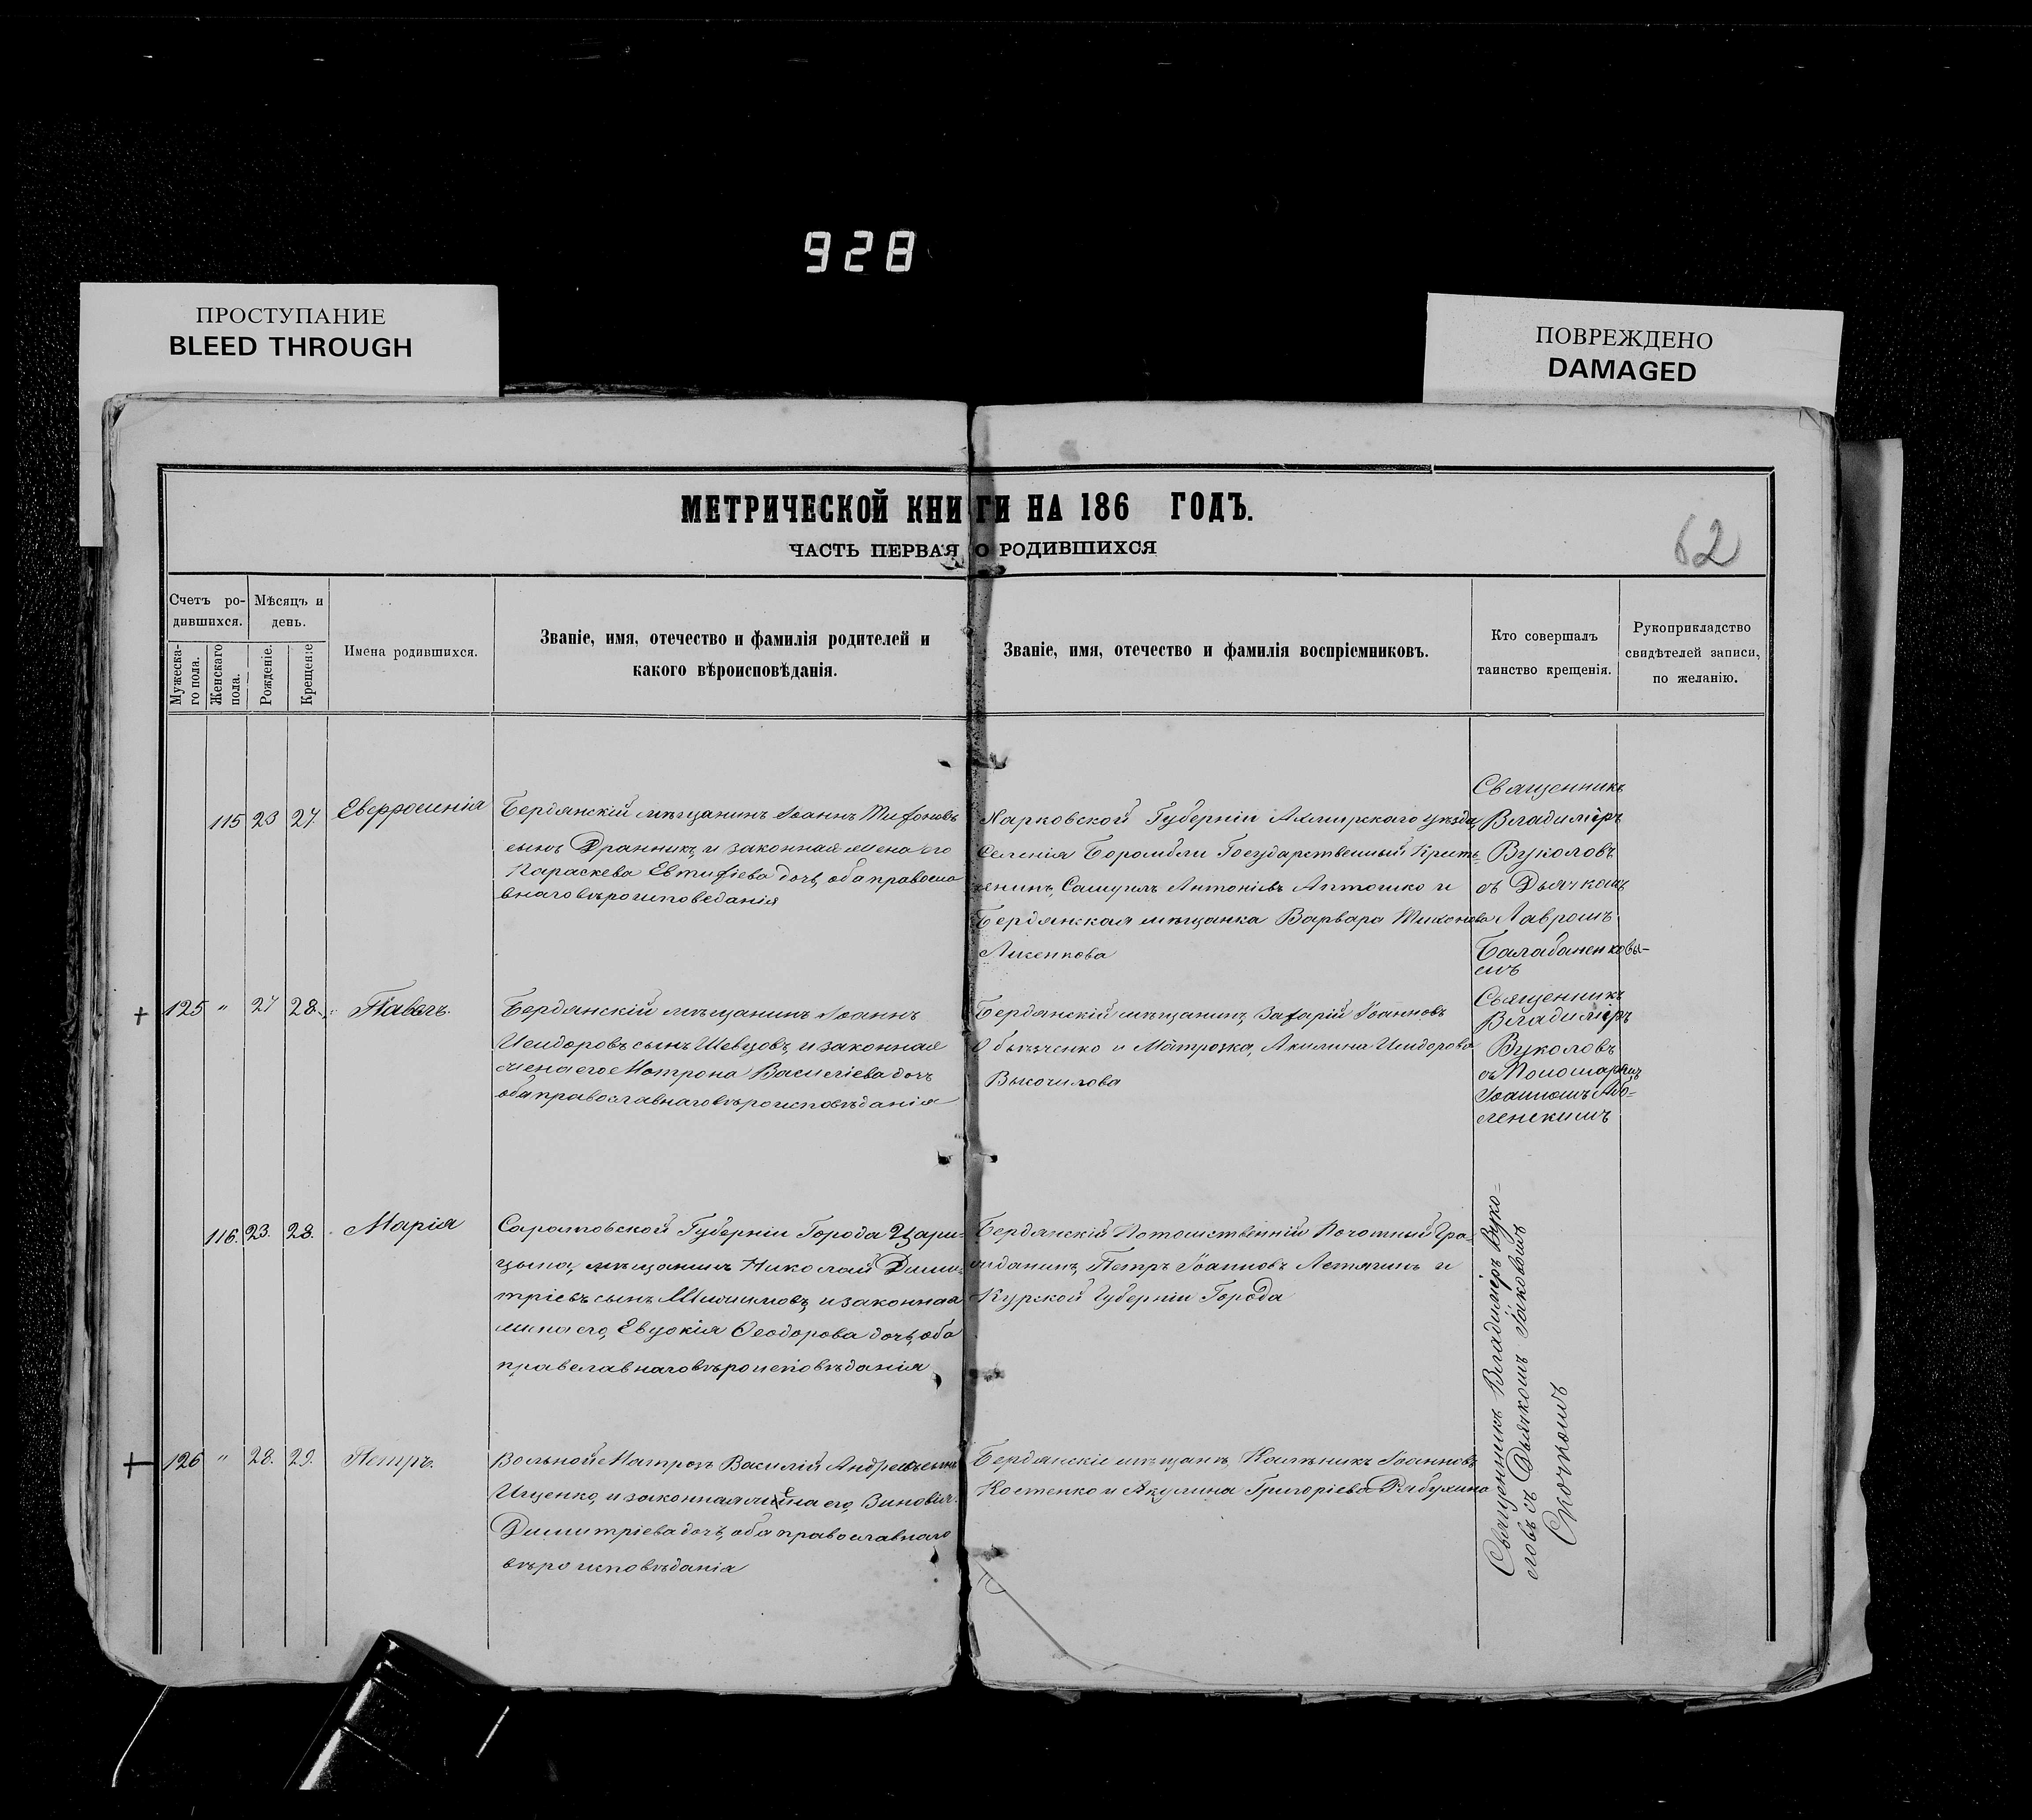 928
ПРОСТУПАНИЕ
BLEED THROUGH
ПОВРЕЖДЕНО
DAMAGED
МЕТРИЧЕСКОЙ КНИГИ НА 186 ГОДЪ.
ЧАСТЬ ПЕРВАЯ О РОДИВШИХСЯ
62
Счетъ ро-
дившихся.
Мѣсяцъ и
день.
Мужеска-
го пола.
Женскаго
пола.
Рожденіе.
Крещеніе
Имена родившихся.
Званіе, имя, отечество и фамилія родителей и
какого вѣроисповѣданія.
Званіе, имя, отечество и фамилія воспріемниковъ.
Кто совершалъ
таинство крещенія.
Рукоприкладство
свидѣтелей записи,
по желанію.
115 23 27. Евфросинія
Бердянскій мѣщанинъ Іоаннъ Тифоновъ
сынъ Дранникъ, и законная жена его
Параскева Евтифіева дочь, оба правосла
внаго вѣроисповеданія
Харковской Губерніи Ахтырскаго уѣзда,
Селенія Боромли Государственный Кресть-
янинъ, Самуилъ Антоніевъ и
Бердянская мѣщанка Варвара Тихонова
Священникъ
Владиміръ
Вуколовъ
съ Дьячкомъ
Лавромъ
Балабаненковы-
мъ
+ 125 " 27 28. Павелъ.
Бердянскій мѣщанинъ Іоаннъ
Исидоровъ сынъ Шевцовъ, и законная
жена его Матрона Василіева дочь
оба православнаго вѣроисповѣданія
Бердянскій мѣщанинъ, Захарій Іоанновъ
и Матрозка, Акилина Исидорова
Высочилова
Священникъ
Владиміръ
Вуколовъ
съ Пономаремъ
Іоанномъ
ленскимъ
116. 23. 28. Марія
Саратовской Губерніи Города Цари-
цына, мѣщанинъ Николай Дими-
тріевъ сынъ и законная
жена его, Евдокія Ѳеодорова дочь, оба
православнаго вѣроисповѣданія
Бердянскій Потомственній Почотный Гра-
жданинъ, Петръ Іоанновъ Летягинъ и
Курской Губерніи Города
+ 126 " 28. 29. Петръ.
Вольной Матрозъ Василій Андреевъ сынъ
Ищенко, и законная жена его, Зиновія
Димитріева дочь, оба православнаго
вѣроисповѣданія
Бердянскіе мѣщанъ, Калѣникъ Іоанновъ
Костенко и Акулина Григоріева Рябухина
Священникъ Владиміръ Вуко-
ловъ съ Дьячкомъ Іаковомъ